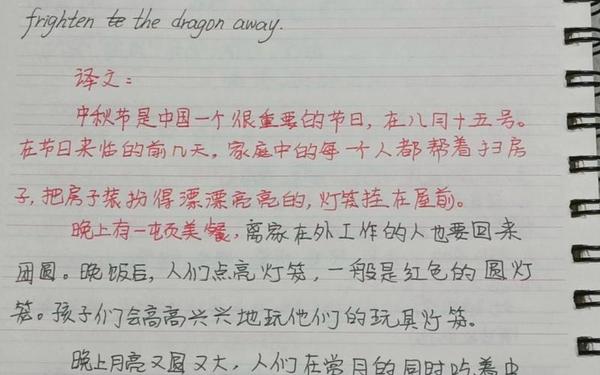 frighten to the dragon away.
译文：
中秋节是中国一个很重要的节日，在八月十五号。
在节日来临的前几天，家庭中的每一个人都帮着扫房
子，把房子装扮得漂漂亮亮的，灯笼挂在屋前。
晚上有一顿美餐，离家在外工作的人也要回来
团圆。晚饭后，人们点亮灯笼，一般是红色的圆灯
笼。孩子们会高高兴兴地玩他们的玩具灯笼。
晚上月亮又圆又大，人们在赏月的同时吃着中